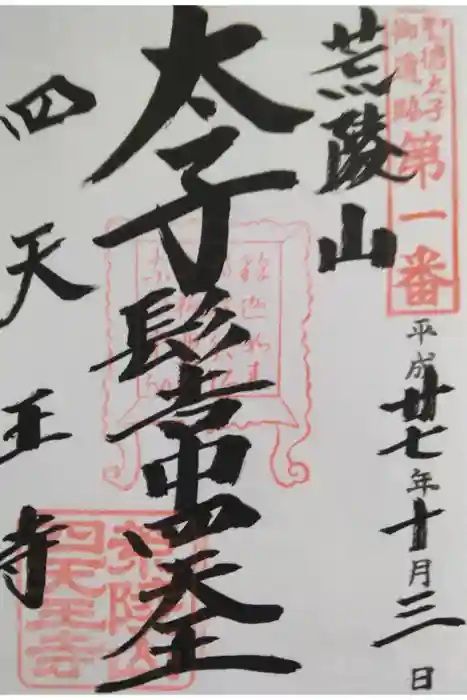 聖徳太子
御遺跡
第一番
平成廿七年十月三日
荒陵山
太子髻中四天王
四天王寺
荒陵山
四天王寺